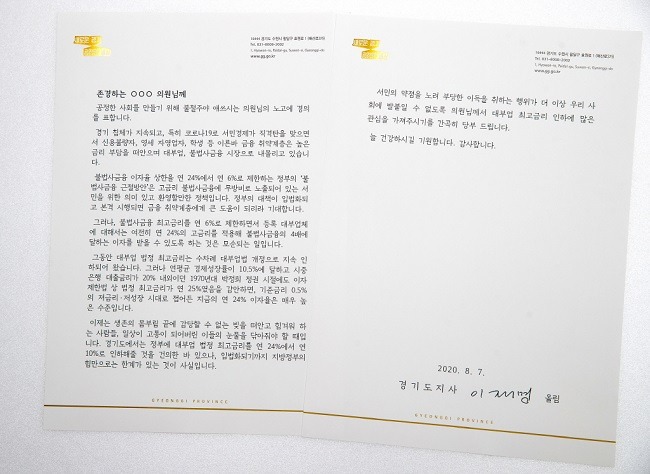 16444 경기도 수원시 팔달구 효원로 1 (매산로3가)
Tel. 031-8008-2002
1, Hyowon-ro, Paldal-gu, Suwon-si, Gyeonggi-do
www.gg.go.kr
존경하는 ○○○ 의원님께
공정한 사회를 만들기 위해 불철주야 애쓰시는 의원님의 노고에 경의
를 표합니다.
경기 침체가 지속되고, 특히 코로나19로 서민경제가 직격탄을 맞으면
서 신용불량자, 영세 자영업자, 학생 등 이른바 금융 취약계층은 높은
금리 부담을 떠안으며 대부업, 불법사금융 시장으로 내몰리고 있습니
다.
불법사금융 이자율 상한을 연 24%에서 연 6%로 제한하는 정부의 '불
법사금융 근절방안'은 고금리 불법사금융에 무방비로 노출되어 있는 서
민을 위한 의미 있고 환영할만한 정책입니다. 정부의 대책이 입법화되
고 본격 시행되면 금융 취약계층에게 큰 도움이 되리라 기대합니다.
그러나, 불법사금융 최고금리를 연 6%로 제한하면서 등록 대부업체
에 대해서는 여전히 연 24%의 고금리를 적용해 불법사금융의 4배에
달하는 이자를 받을 수 있도록 하는 것은 모순되는 일입니다.
그동안 대부업 법정 최고금리는 수차례 대부업법 개정으로 지속 인
하되어 왔습니다. 그러나 연평균 경제성장률이 10.5%에 달하고 시중
은행 대출금리가 20% 내외이던 1970년대 박정희 정권 시절에도 이자
제한법 상 법정 최고금리가 연 25%였음을 감안하면, 기준금리 0.5%
의 저금리·저성장 시대로 접어든 지금의 연 24% 이자율은 매우 높
은 수준입니다.
이제는 생존의 몸부림 끝에 감당할 수 없는 빚을 떠안고 힘겨워 하
는 사람들, 일상이 고통이 되어버린 이들의 눈물을 닦아줘야 할 때입
니다. 경기도에서는 정부에 대부업 법정 최고금리를 연 24%에서 연
10%로 인하해줄 것을 건의한 바 있으나, 입법화되기까지 지방정부의
힘만으로는 한계가 있는 것이 사실입니다.
GYEONGGI PROVINCE
16444 경기도 수원시 팔달구 효원로 1 (매산로3가)
Tel. 031-8008-2002
1, Hyowon-ro, Paldal-gu, Suwon-si, Gyeonggi-do
www.gg.go.kr
서민의 약점을 노려 부당한 이득을 취하는 행위가 더 이상 우리 사
회에 발붙일 수 없도록 의원님께서 대부업 최고금리 인하에 많은
관심을 가져주시기를 간곡히 당부 드립니다.
늘 건강하시길 기원합니다. 감사합니다.
2020. 8. 7.
경기도지사 이재명 올림
GYEONGGI PROVINCE